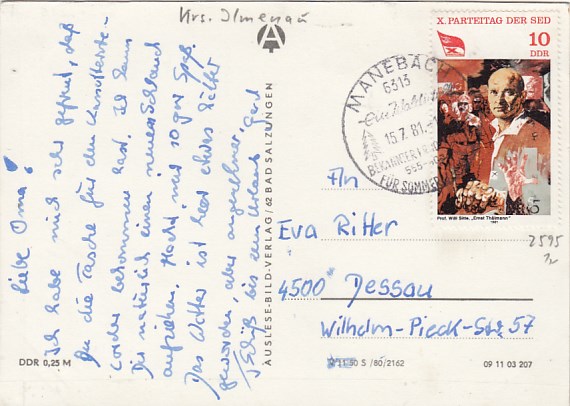 Krs. Ilmenau
Liebe Oma!
Ich habe mich sehr gefreut, daß
Du die Tasche für den Kassettenre-
corder bekommen hast. Ich kann
Dir natürlich einen neuen Schlauch
aufziehen. Macht mir so gar Spaß.
Das Wetter ist hier etwas kühler
geworden, aber angenehmer.
Tschüß bis zum Urlaub Gerd
AUSLESE-BILD-VERLAG / 62 BAD SALZUNGEN
DDR 0,25 M
X. PARTEITAG DER SED
10
DDR
Prof. Willi Sitte, „Ernst Thälmann"
1981
MANEBACH
6313
15.7.81
FÜR SOMMER
An
Eva Ritter
4500 Dessau
Wilhelm-Pieck-Str. 57
2595
S /80/2162
09 11 03 207